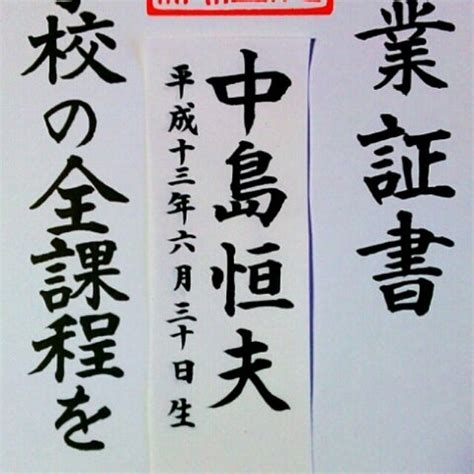 業証書
中島恒夫
平成十三年六月三十日生
校の全課程を